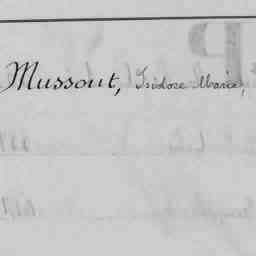 Mussout, Isidore Marie,